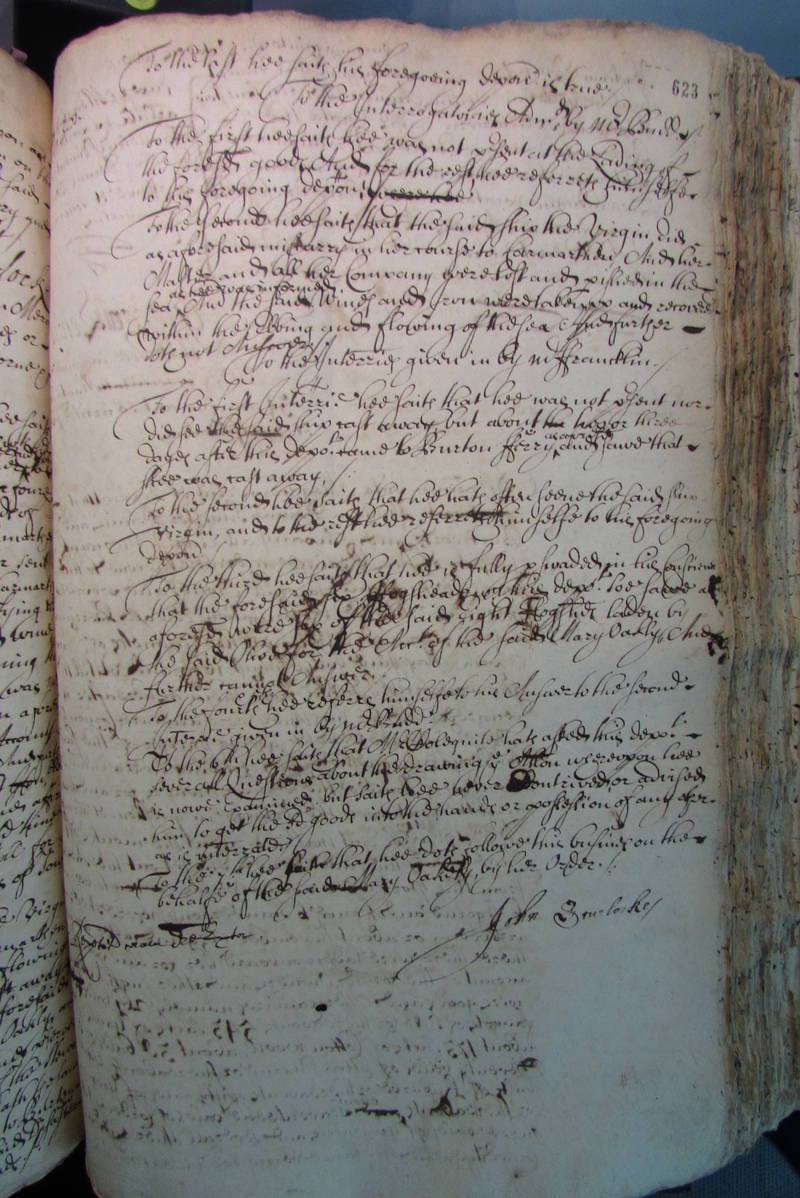 623
To the last hee saith his foregoeing deposn is true
To the Interrogatories Adm: by Mr Budd
To the first hee saith hee was not psent at the Lading of
the foresd goods And for the rest hee referreth himselfe
to his foregoing deposn
To the second hee saith that the said ship the Virgin did
as aforesaid miscarry in her course to Carmarthen And her
Master and all her Company were lost and pished in the
as hee was informed
sea And the said Wines and Iron were taken up and recovered
within the Ebbing and flowing of the sea And further
doth not Answer
To the Interries given in by Mr ffrancklin
To the first Interrie hee saith that hee was not psent nor
did see the said ship cast away but about two or three
dayes after this depot came to Burton fferry and sawe that
shee was cast away
To the second hee saith that hee hath often seene the said ship
Virgin, and to the rest hee referreth himselfe to his foregoing
deposn
To the third hee saith that hee is fully pswaded in his conscience
that the foresaid six Hogsheads this depot soe sawe as
aforesd were six of the said eight Hogshds laden by
the said for the Acct of the said Mary Oakly, And
further cannot Answer
To the fourth hee referrs himselfe to his Answer to the second
Interrie given in by Mr Budd
To the 6th hee saith that Mr hath asked this depot
severall Questions about the drawing of wereupon hee
is nowe examined but saith hee never Contrived or advised
him to get the sd goods into the hands or possession of any pson
as is interrated
To the hee saith that hee doth followe this busines on the
behalfe of the said Mary Oakly, by her Order.
John